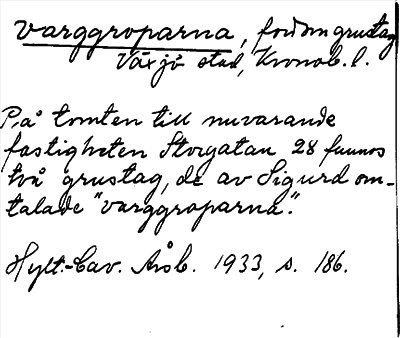 varggroparna, fordom grustag
Växjö stad, Kronob. l.
På tomten till nuvarande
fastigheten Storgatan 28 funnos
två grustag, de av Sigurd om-
talade "varggroparna".
Hylt.-Cav. Årsb. 1933, s. 186.